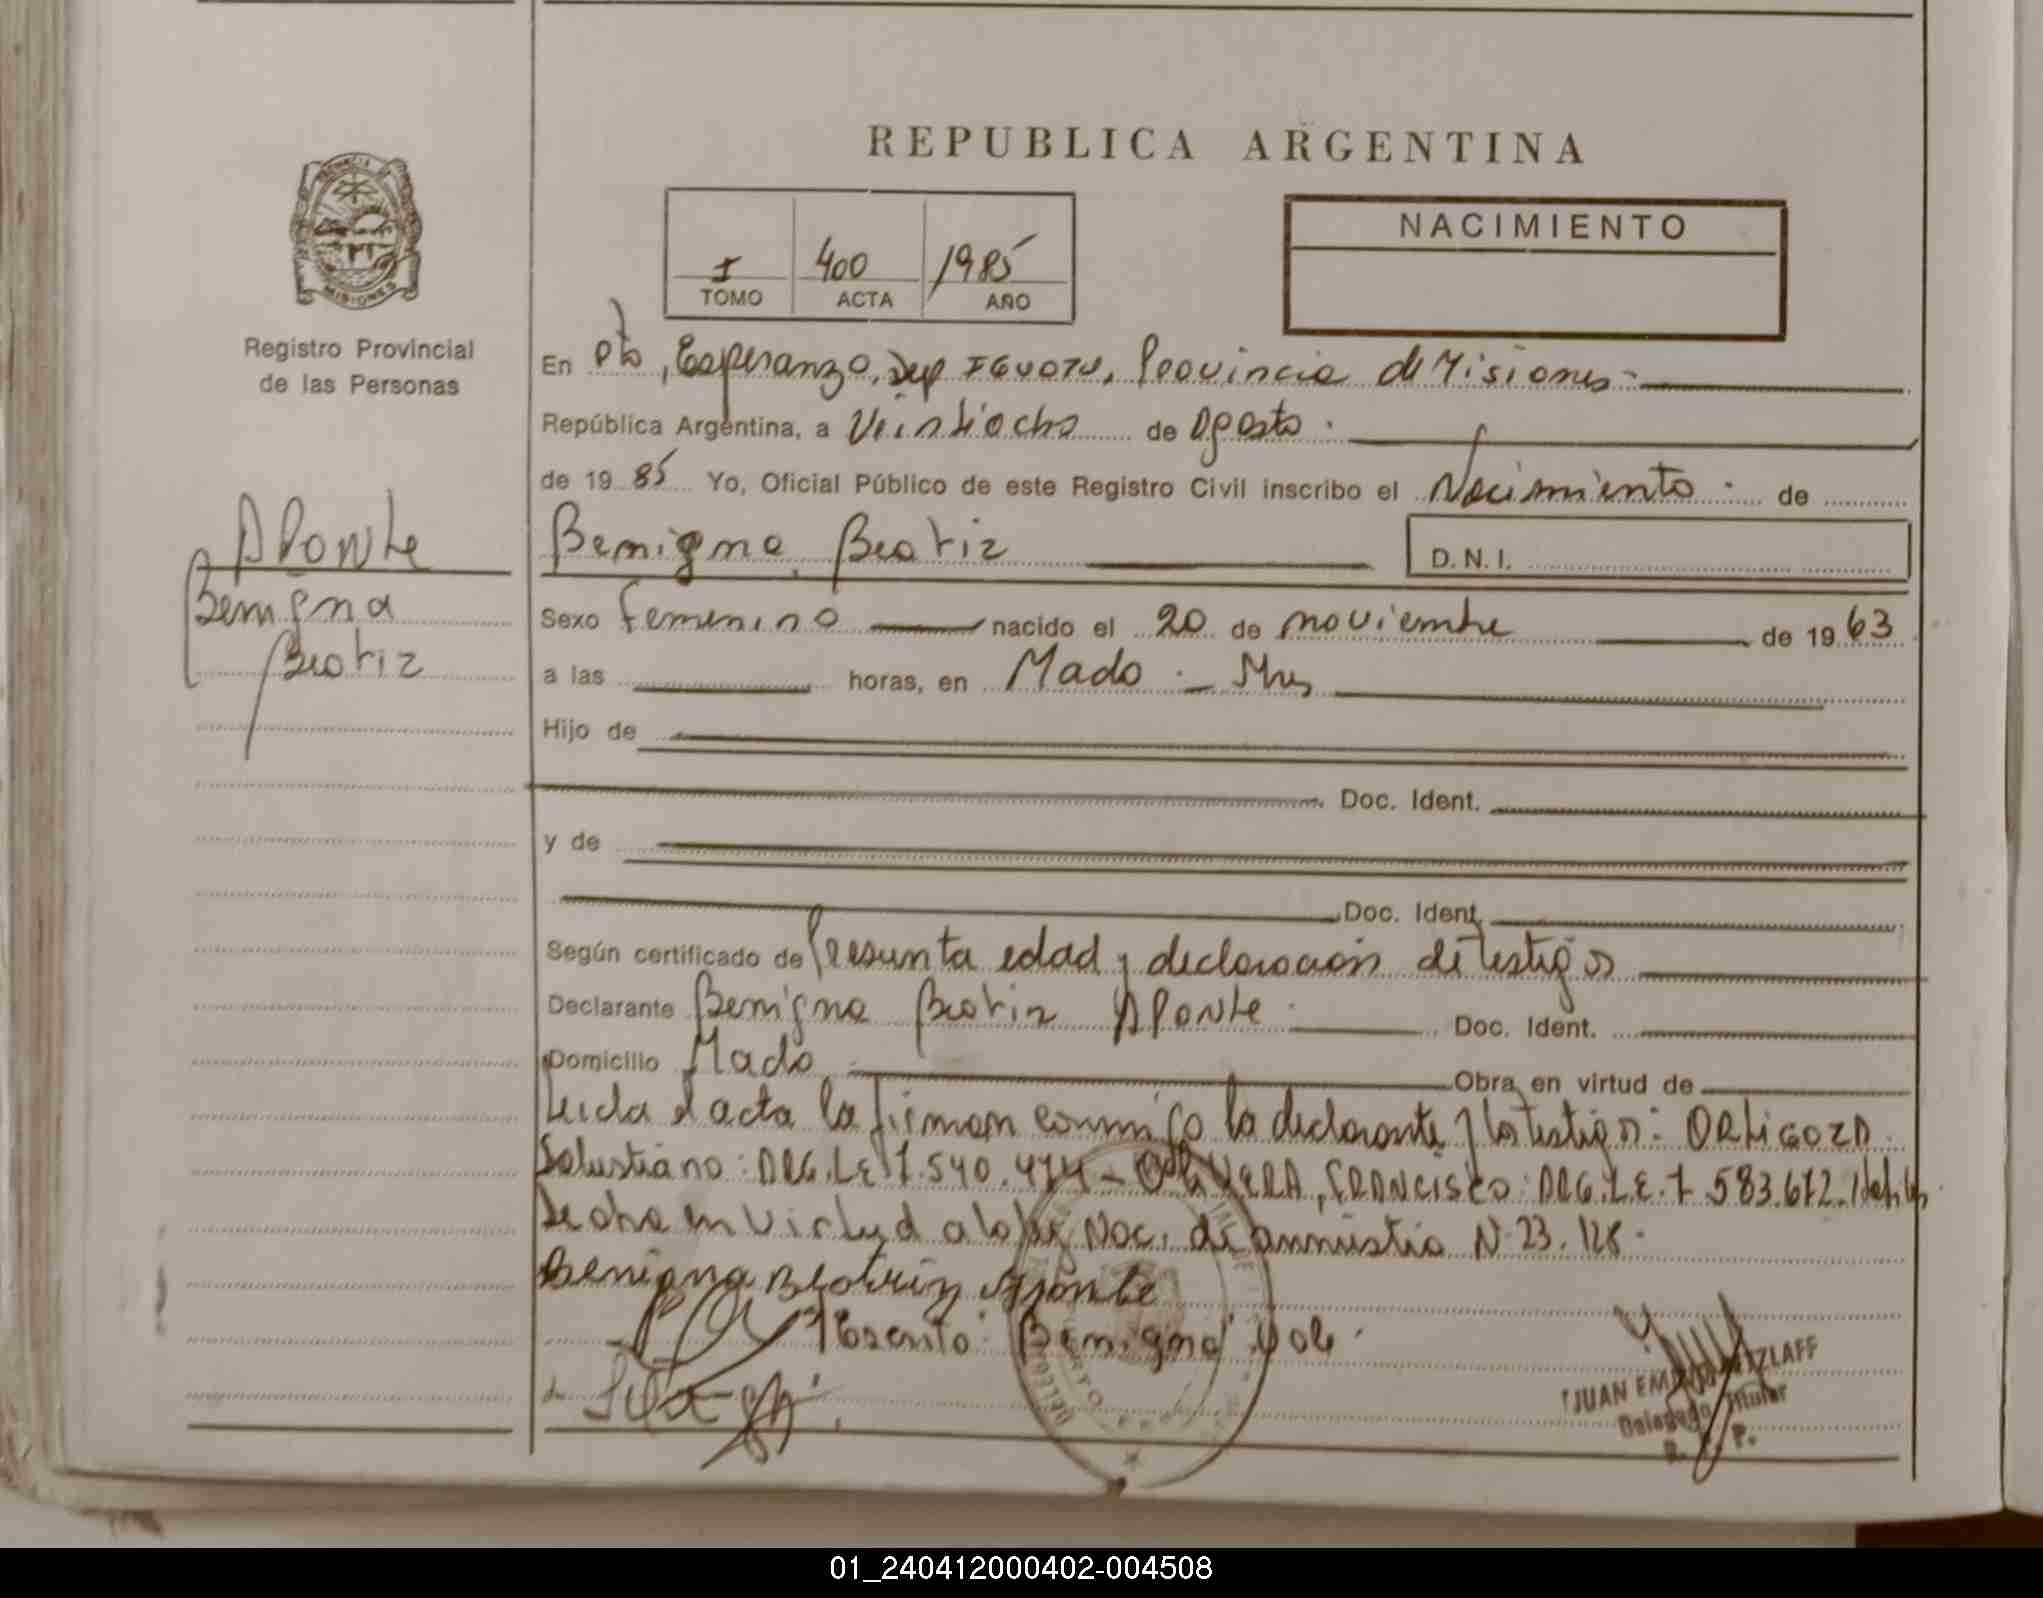 REPUBLICA ARGENTINA
PROVINCIA DE
MISIONES
Registro Provincial
de las Personas
I 400 1985
TOMO ACTA AÑO
NACIMIENTO
En Pto, Esperanza, Dep IGUAZU, Provincia de Misiones
República Argentina, a Veintiocho de agosto
de 1985 Yo, Oficial Público de este Registro Civil inscribo el Nacimiento de
APonte
Benigna
Beatriz
Benigna Beatriz D.N.I.
Sexo femenino nacido el 20 de noviembre de 1963
a las horas, en Mado - Mnes
Hijo de
Doc. Ident.
y de
Doc. Ident.
Según certificado de Presunta edad y declaración de testigos
Declarante Benigna Beatriz APonte Doc. Ident.
Domicilio Mado Obra en virtud de
Leida el acta la firman conmigo la declarante y los testigos: ORTIGOZA
Salustiano: ARG. LE 7.540.474 - OLIVERA, FRANCISCO: ARG. L.E. 7 583.672.
Se labra en virtud a la ley Nac. de amnistia N 23.128.
Benigna Beatriz Aponte
Escrito: Benigna Vale
JUAN
Delegado Titular
R. P.
01_240412000402-004508